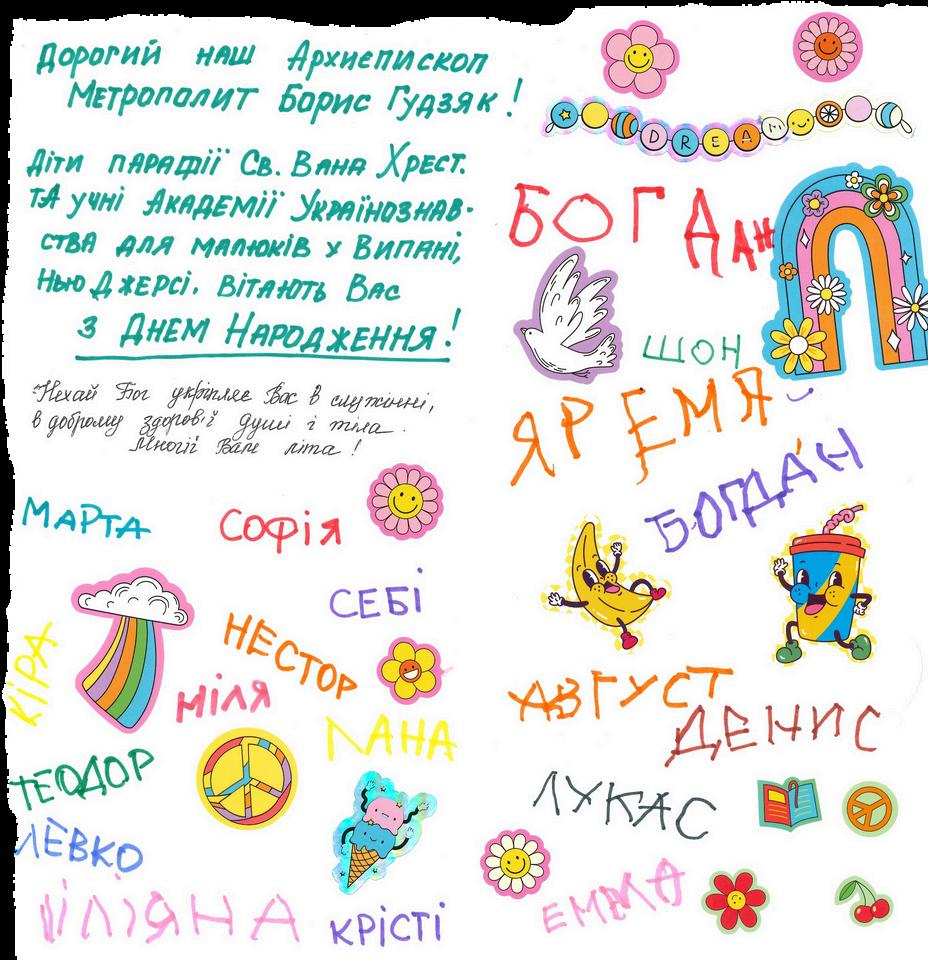 Дорогий наш Архиепископ
Метрополит Борис Гудзяк!
Діти парафії Св. Вана Хрест.
та учні Академії Українознав-
ства для малюків у Випані,
Нью Джерсі, вітають Вас
з Днем Народження!
"Нехай Бог укріпляє Вас в служінні,
в доброму здоров'ї душі і тіла.
Многії Вам літа!
МАРТА
СОФІЯ
СЕБІ
НЕСТОР
КІРА
МІЛЯ
ЛАНА
ТЕОДОР
ЛЕВКО
ІЛІЯНА
КРІСТІ
DREAM
БОГДАН
ШОН
ЯРЕМА
БОГДАН
АВГУСТ
ДЕНИС
ЛУКАС
ЕММА